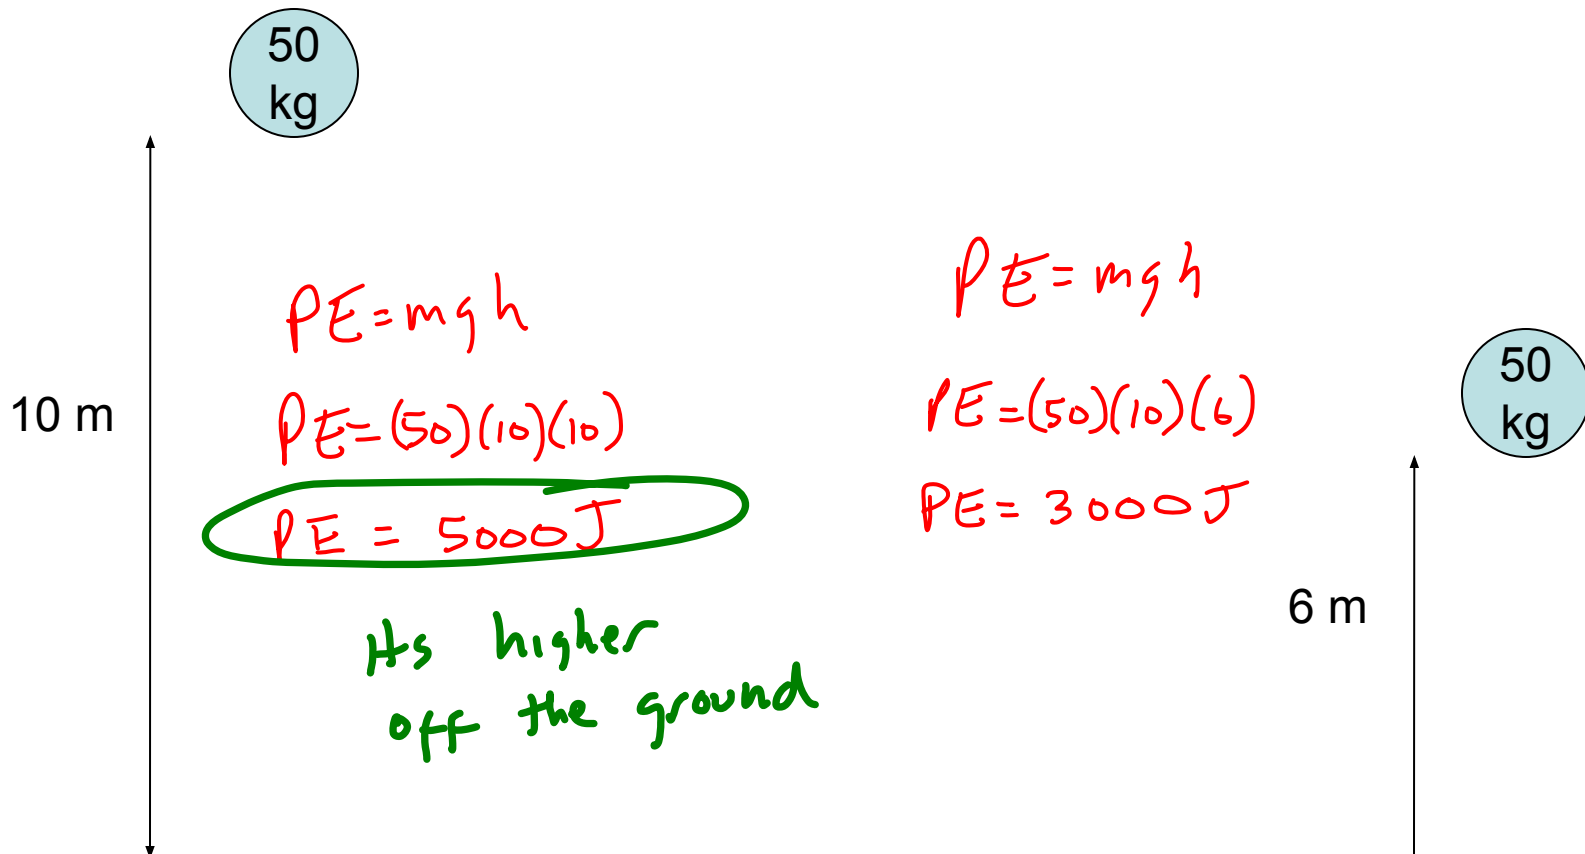 50
kg
10 m
PE=mgh
PE=(50)(10)(10)
PE = 5000J
Its higher
off the ground
PE=mgh
PE=(50)(10)(6)
PE= 3000J
50
kg
6 m